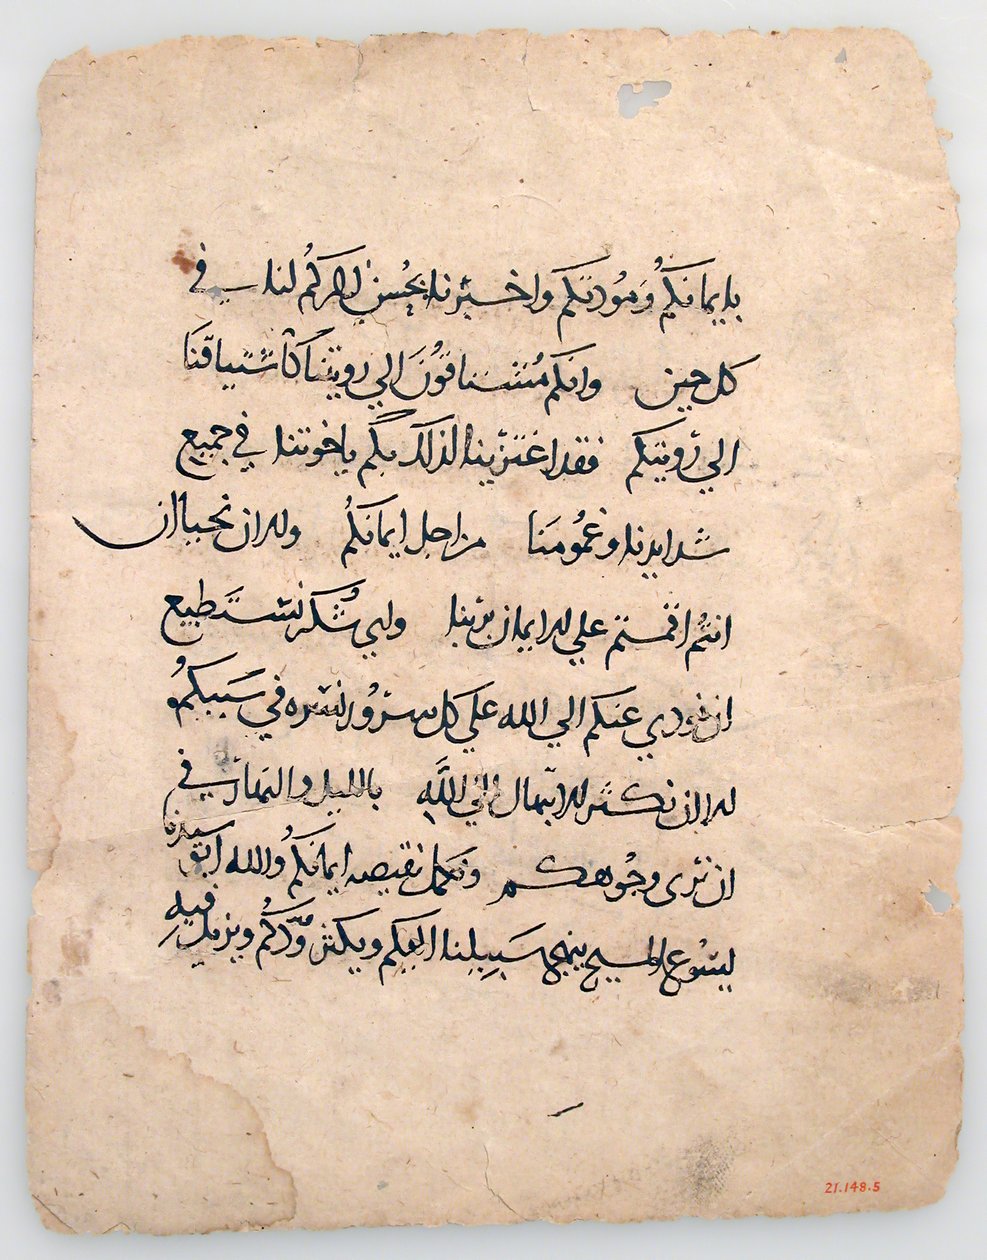 بايمانكم وَمودتكم واخبرنا بحُسن ذكركم لنا في
كل حين وانكم مُشتاقوُنَ الي رويتنا كاشتياقنا
الي رويتكم فقد اعتزينا لذلك بكم يا خوتنا في جميع
شدايدنا وغمُومنَا من اجل ايمانكمُ ولان نحيا ان
انتمُ اقمتم علي الايمان بربنا واي شُكر نستطيع
ان نودي عنكم الي الله علي كل سروُر نسره في سَببكمُ
الا ان نكثر الابتهال الي اللَّهِ بالليل والنهار في
ان نرى وجُوهكم ونكمل نقيصه ايمانكمُ والله ابو سيدنا
ليسُوع المسيح ينهج سَبيلنا اليكم ويكثر وُدَّكُم ويزيل فيه
21.148.5